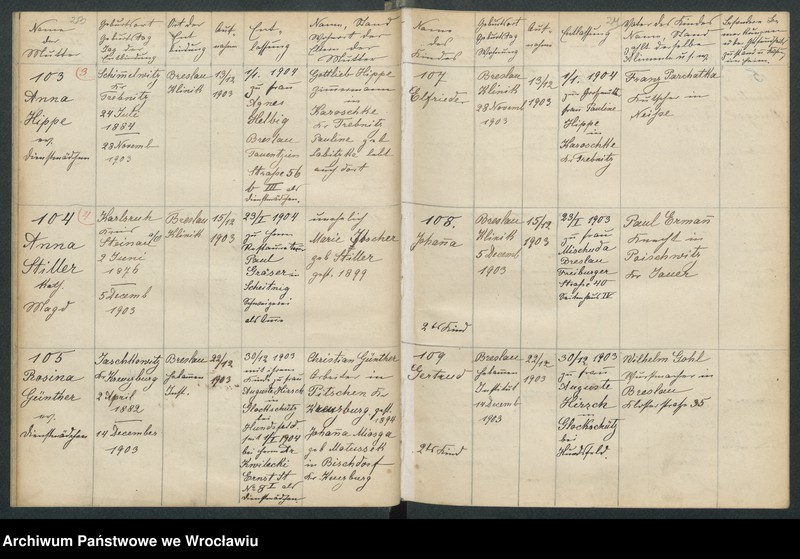 250
Name
der
Mutter
Geburtsort
Geburtstag
Tag der
Entbindung
Ort der
Ent
bindung
Auf-
nahme
Ent-
lassung
Name, Stand
Wohnort der
Eltern der
Mutter
103
Anna
Hippe
ev.
Dienstmädchen
Schimelwitz
Kr
Trebnitz
24 Juli
1884
28 Novemb
1903
Breslau
Klinik
13/12
1903
1/1. 1904
zu frau
Agnes
Helbig
Breslau
Tauentzien
Straße 56
b III als
Dienstmädchen.
Gottlieb Hippe
Zimmermann
in
Karoschke
Kr Trebnitz
Pauline geb
lebt
auch dort
104
Anna
Stiller
kath.
Magd
Karlsruh
Kreis
Steinau a/O
2 Juni
1876
5 Decemb
1903
Breslau
Klinik
15/12
1903
23/I 1904
zu Herrn
Paul
Gräser in
Scheitnig
als Amme
unehelich
Marie
geb Stiller
gest. 1899
105
Rosina
Günther
ev.
Dienstmädchen
Jaschkowitz
Kr Kreuzburg
2 April
1882
14 December
1903
Breslau
Hebamen
Inst.
22/12
1903
30/12 1903
mit ihrem
Kinde zu frau
Auguste Hirsch
in
Glockschütz
Hundsfeld.
seit 1/I 1904
bei
Kwilecki
Ernst St
No 8 I als
Dienstmädchen
Christian Günther
Arbeiter in
Pitschen Kr
Kreuzburg gest.
1894
Johanna
geb
in Bischdorf
Kr Kreuzburg
Name
des
Kindes
Geburtsort
Geburtstag
Wohnung
Auf-
nahme
Entlassung
Vater des Kindes
Name, Stand
107
Elfriede
Breslau
Klinik
28 Novemb
1903
13/12
1903
1/1. 1904
zur Großmutter
frau Pauline
Hippe
in
Karoschke
Kr Trebnitz
Franz
Kutscher in
Neisse
108.
Johanna
2tes Kind
Breslau
Klinik
5 Decemb
1903
15/12
1903
23/I 1903
zu frau
Mischuda
Breslau
Freiburger
Straße 40
Seitenhaus IV
Paul Ermann
Knecht in
Poischwitz
Kr Jauer
109
Gertrud
2tes Kind
Breslau
Hebamen
Institut
14 Decemb
1903
22/12
1903
30/12 1903
zu frau
Auguste
Hirsch
in
Glockschütz
bei
Hundsfeld.
Wilhelm Gohl
Wurstmacher in
Breslau
Klosterstraße 35
Archiwum Państwowe we Wrocławiu